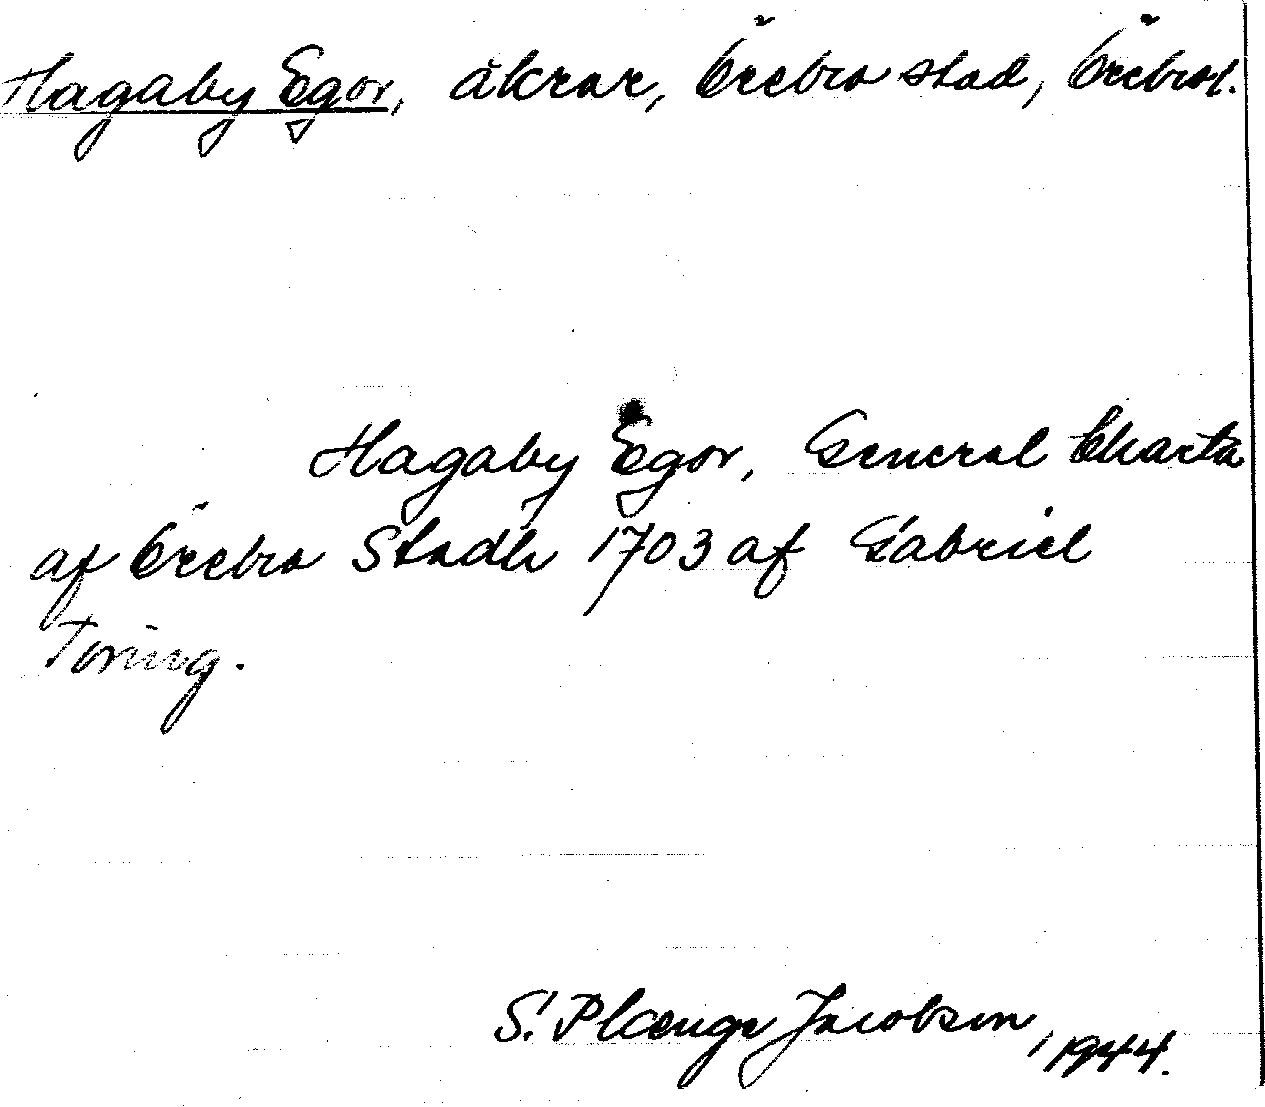 Hagaby Egor, åkrar, Örebro stad, Örebro l.
Hagaby Egor, General Charta
af Örebro Stadh 1703 af Gabriel
Toring.
S. Plænge Jacobson, 1944.